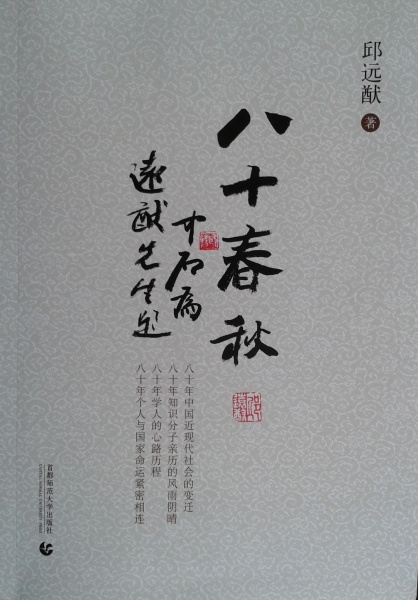 邱远猷
著
八十春秋
中石为
远猷先生题
八十年中国近现代社会的变迁
八十年知识分子亲历的风雨阴晴
八十年学人的心路历程
八十年个人与国家命运紧密相连
首都师范大学出版社
CAPITAL NORMAL UNIVERSITY PRESS